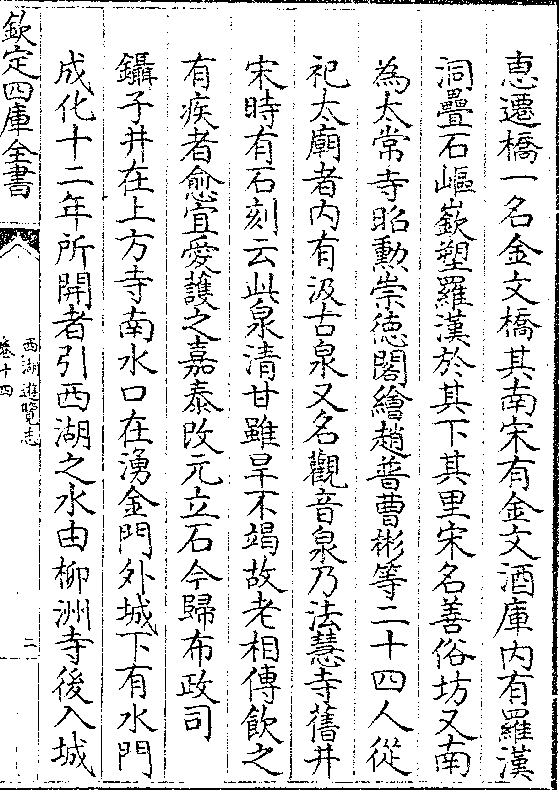 恵遷橋一名金文橋其南宋有金文酒庫内有羅漢
洞疊石嶇嶔塑羅漢於其下其里宋名善俗坊又南
為太常寺昭勲崇徳閣繪趙普曹彬等二十四人從
祀太廟者内有汲古泉又名觀音泉乃法慧寺舊井
宋時有石刻云此泉清甘雖旱不竭故老相傳飲之
有疾者愈宜愛䕶之嘉泰改元立石今歸布政司
鑷子井在上方寺南水口在湧金門外城下有水門
成化十二年所開者引西湖之水由柳洲寺後入城
欽定四庫全書
西湖遊覽志
卷十四
二